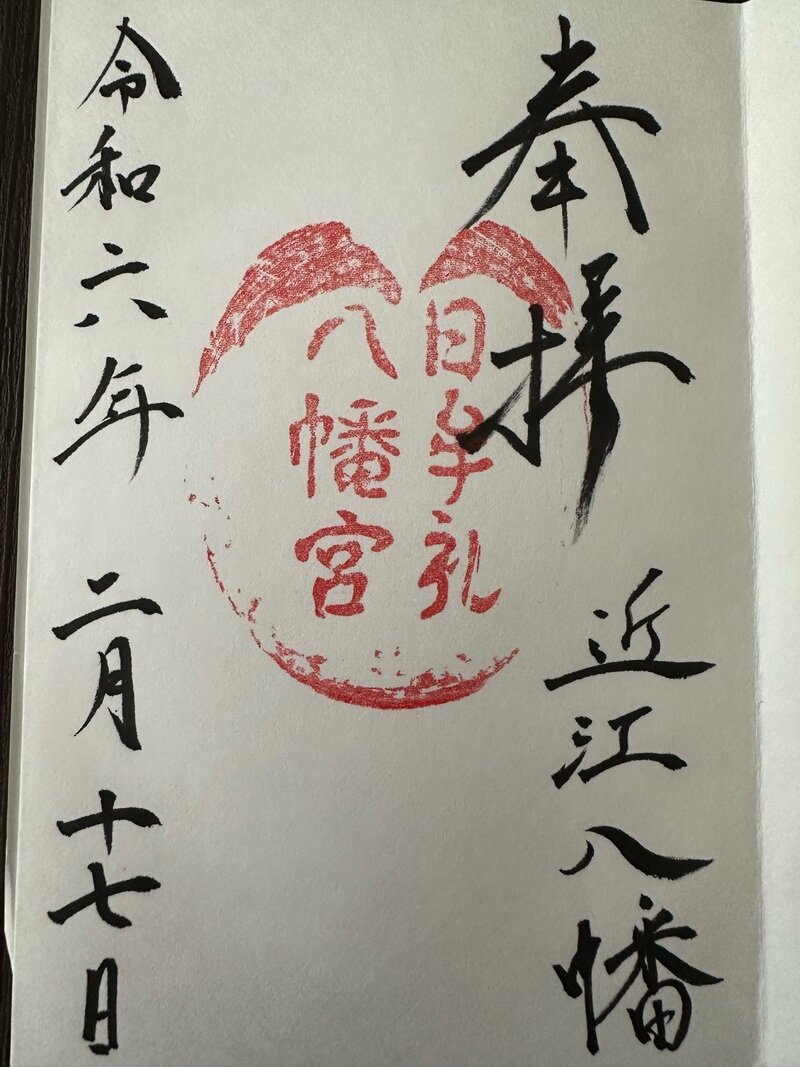 奉拝
近江八幡
日牟礼
八幡宮
令和六年
二月十七日